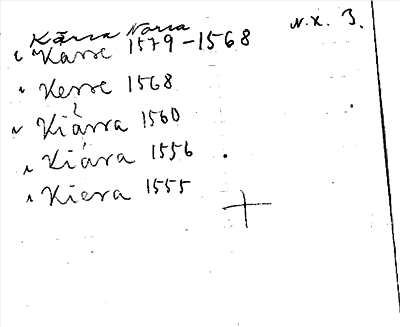 Kärra Norra N.X. 3.
" Kärre 1579-1568
" Kerre 1568
" Kiärra 1560
" Kiära 1556
" Kiera 1555